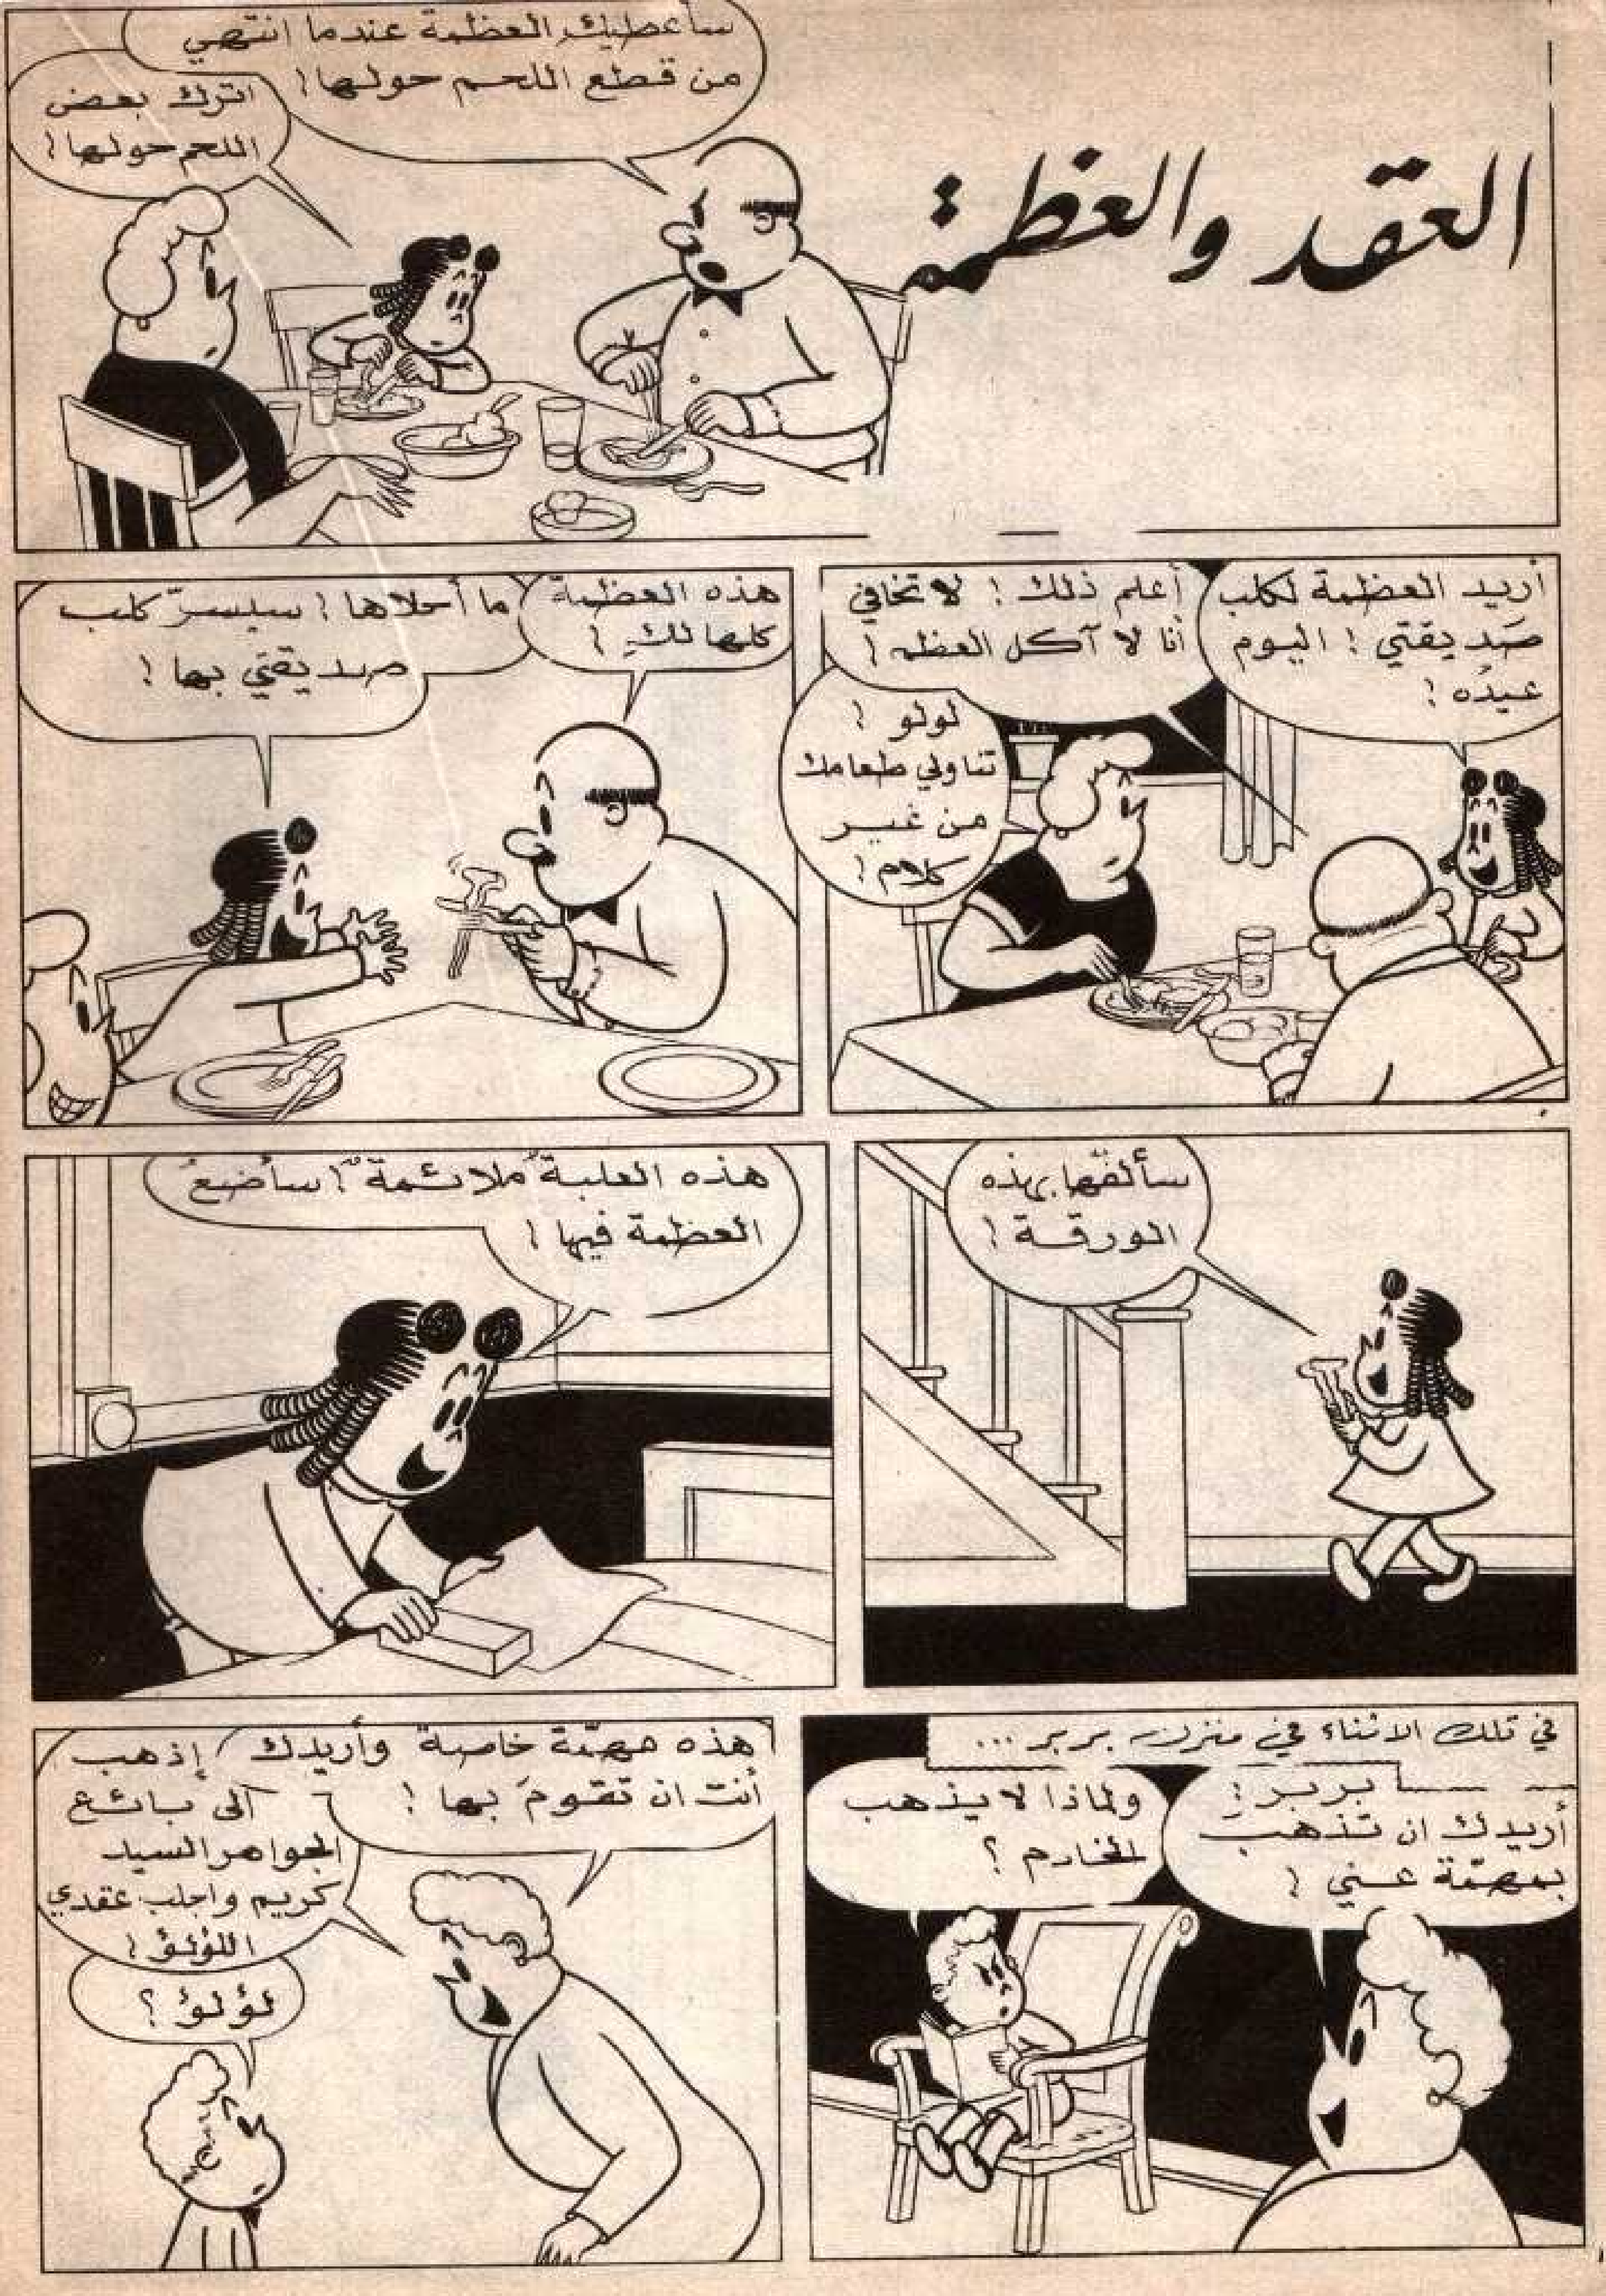 العقد والعظمة
سأعطيك العظمة عندما انتهي
من قطع اللحم حولها!
اترك بعض
اللحم حولها!
أريد العظمة لكلب
صديقتي! اليوم
عيده!
أعلم ذلك! لا تخافي
أنا لا آكل العظم!
لولو!
تناولي طعامك
من غير
كلام!
هذه العظمة
كلها لكِ!
ما أحلاها! سيسرّ كلب
صديقتي بها!
سألفّها بهذه
الورقة!
هذه العلبة ملائمة! سأضعُ
العظمة فيها!
في تلك الاثناء في منزل بربر...
بربر!
أريدك ان تذهب
بمهمّة عني!
ولماذا لا يذهب
الخادم؟
هذه مهمّة خاصة وأريدك
أنت ان تقومَ بها!
إذهب
الى بائع
الجواهر السيد
كريم واجلب عقدي
اللؤلؤ!
لؤلؤ؟